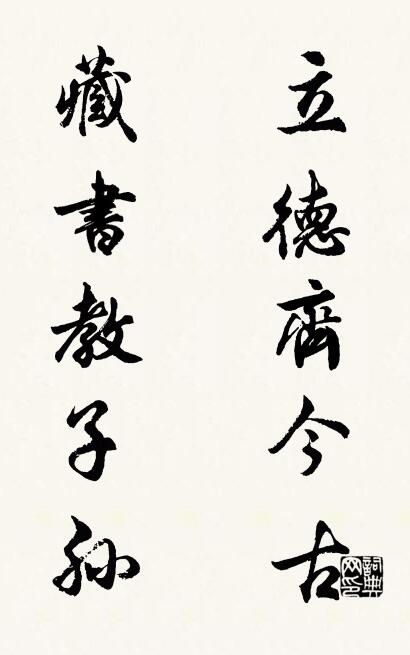 立德齊今古
藏書教子孫
詞典网印